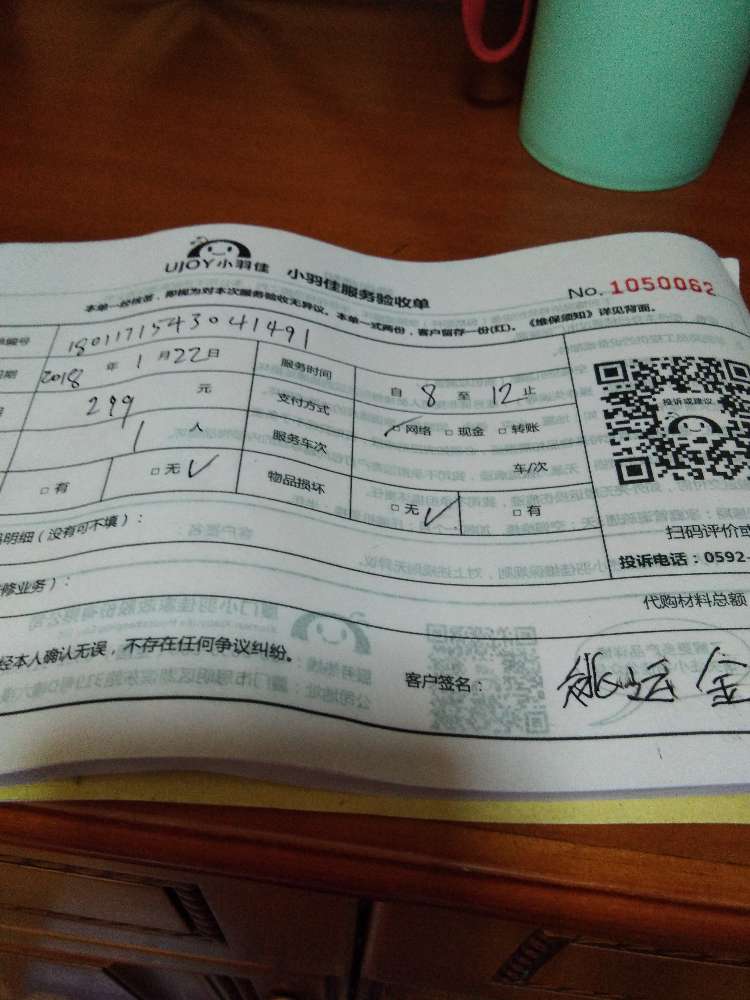 UJOY小羽佳 小羽佳服务验收单
No. 1050062
本单一经核签，即视为对本次服务验收无异议。本单一式两份，客户留存一份(红)。《维保须知》详见背面。
编号 1801171543041491
期 2018 年 1 月 22 日 服务时间 自 8 至 12 止
299 元 支付方式 □ 网络 □ 现金 □ 转账
1 人 服务车次 车/次
□ 有 □ 无 ✓ 物品损坏 □ 无 ✓ □ 有
投诉或建议
扫码评价或
投诉电话：0592-
明细（没有可不填）：
修业务）：
代购材料总额
经本人确认无误，不存在任何争议纠纷。
客户签名： 姚运金